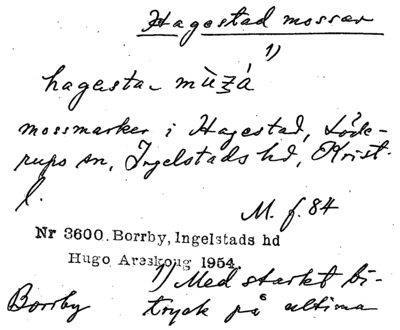 Hagestad mossar
1)
hagesta- mùʒá
mossmarker i Hagestad, Löde-
rups sn, Ingelstads hd, Krist.
l.
M. f. 84
Nr 3600. Borrby, Ingelstads hd
Hugo Areskoug 1954.
1) Med starkt bi-
Borrby tryck på ultima